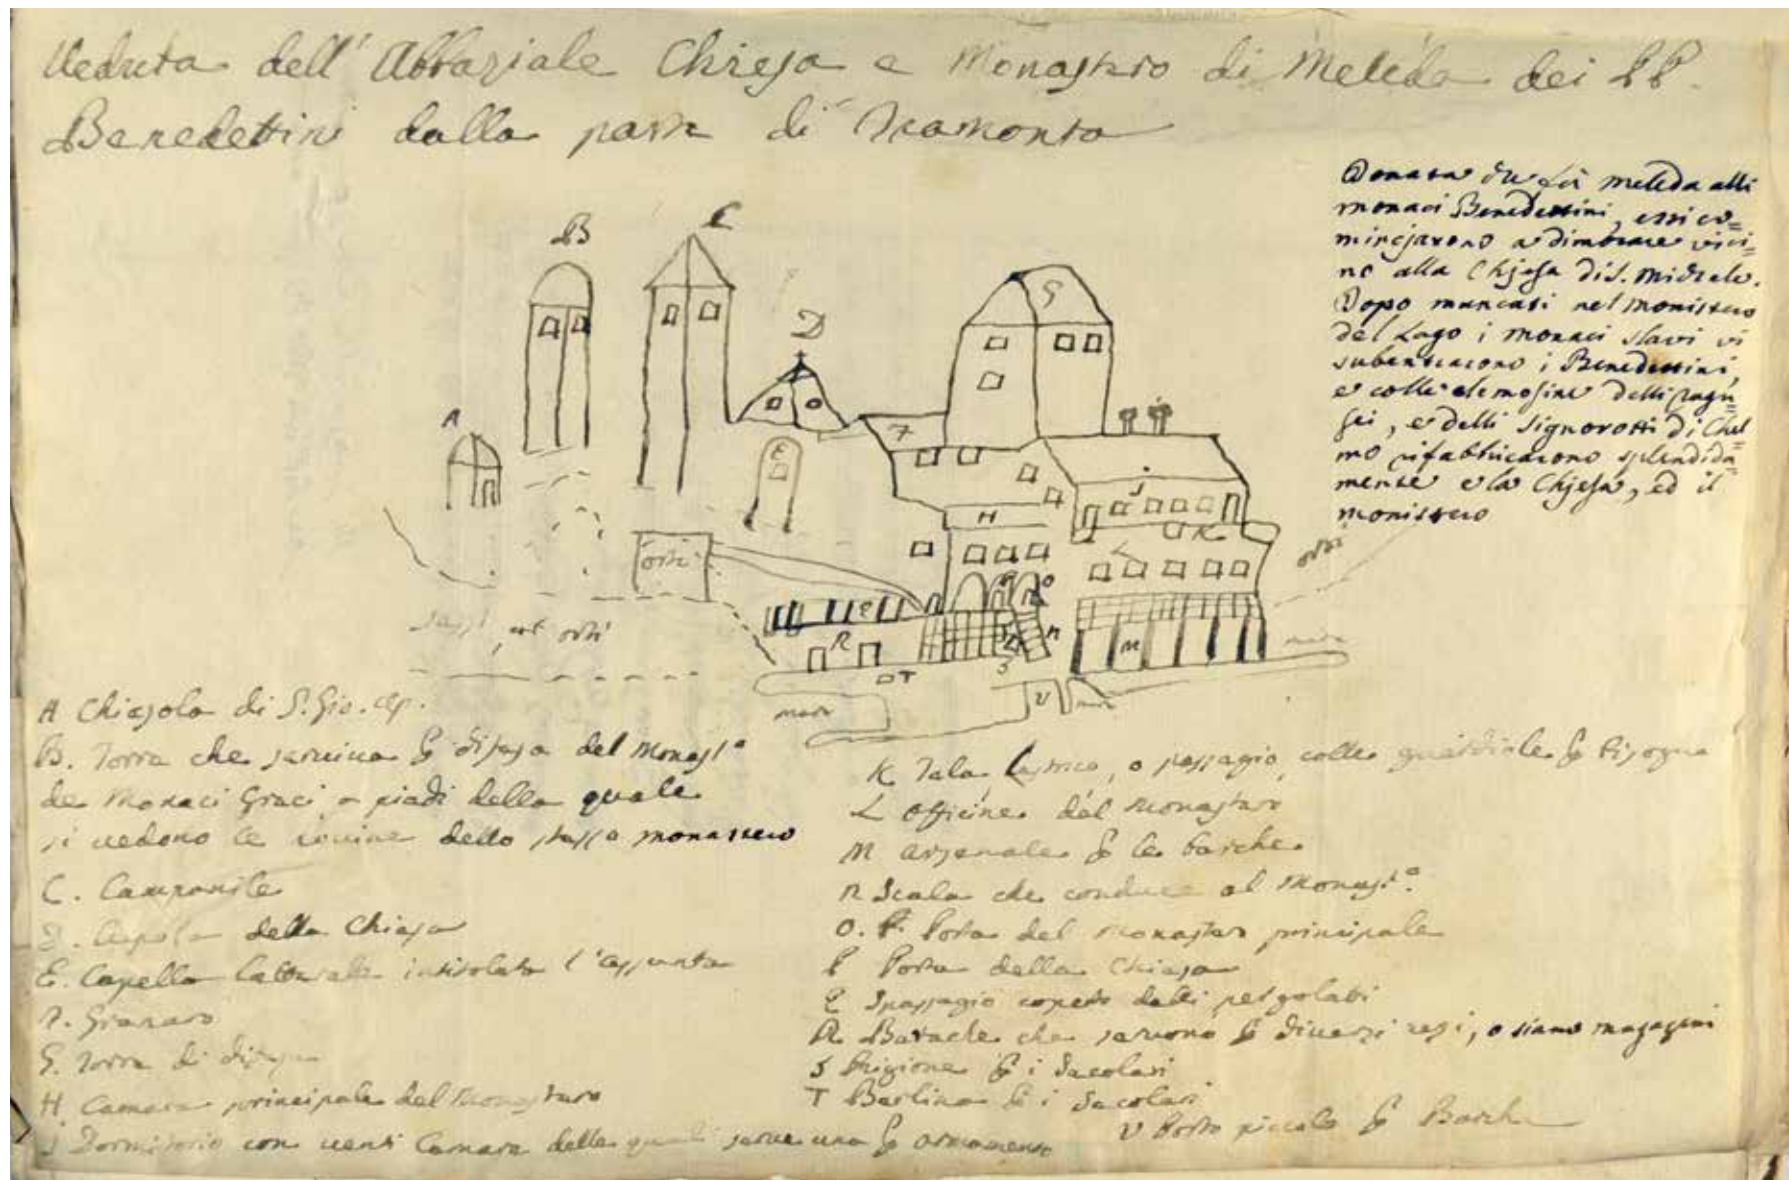 Veduta dell'Abbaziale Chiesa e Monastero di Meleda dei PP.
Benedettini dalla parte di Tramonta
Donata Meleda alli
monaci Benedettini, essi co=
minciarono a dimorare vici=
no alla Chjesa di S. Michele.
Dopo mancati nel monistero
del Lago i monaci slavi vi
subentrarono i Benedettini,
e colle elemosine delli ragu=
sei, e delli Signorotti di Chel=
mo rifabbricarono splendida=
mente e la Chjesa, ed il
monistero
B
C
D
A
E
F
G
H
J
K
L
O
P
Q
N
M
R
S
T
V
orti
orti
orti
mare
mare
mare
A Chiesola di S. Gio.
B. Torre che serviva di difesa del Monast.o
de Monaci Greci a piedi della quale
si vedono le rovine dello stesso monastero
C. Campanile
D. Cupola della Chiesa
E. Capella intitolata l'Assunta
F. Granaro
G. Torre di difesa
H. Camera principale del Monastero
J Dormitorio con venti Camere delle quali serve una armamento
K Tela, o passagio, colle bisogna
L Officine del Monastero
M Arsenale le barche
N Scala che conduce al Monast.o
O. Porta del Monastero principale
P Porta della Chiesa
Q Spassagio coperto dalli pergolati
R Barache che servono diversi usi, o siano magazini
S Prigione i Secolari
T Berlina i Secolari
V Porto piccolo Barche